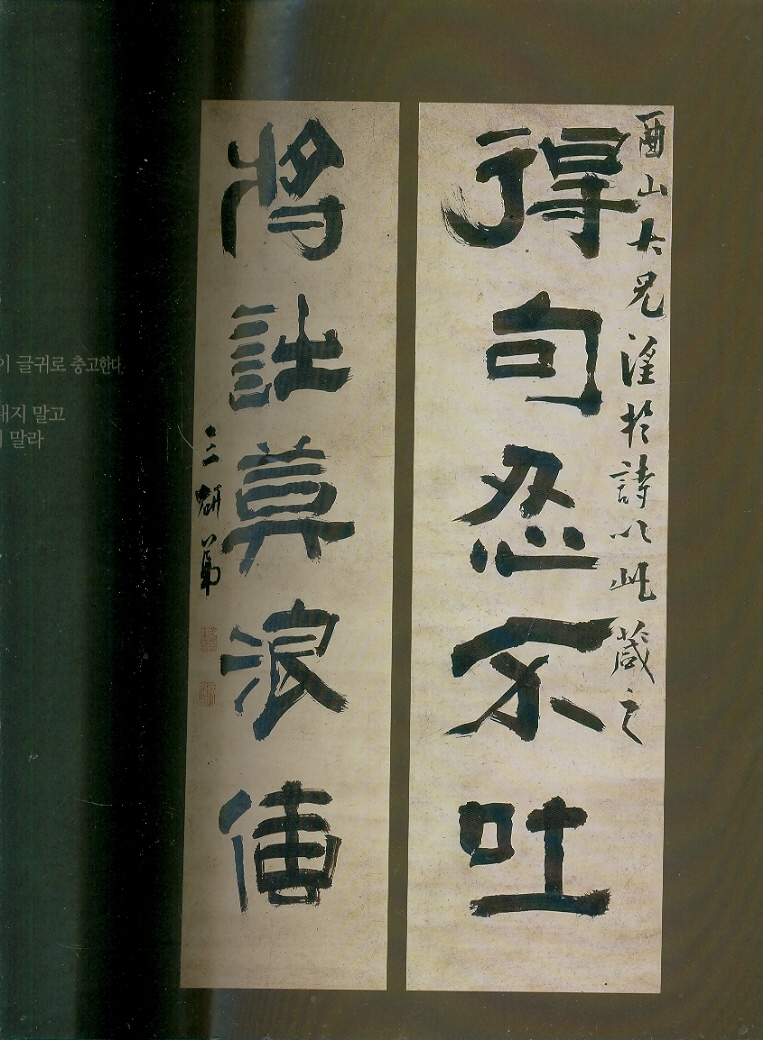 酉山大兄淫於詩以此箴之
得句忍不吐
將詩莫浪傳
三硏弟
이 글귀로 충고한다.
내지 말고
말라